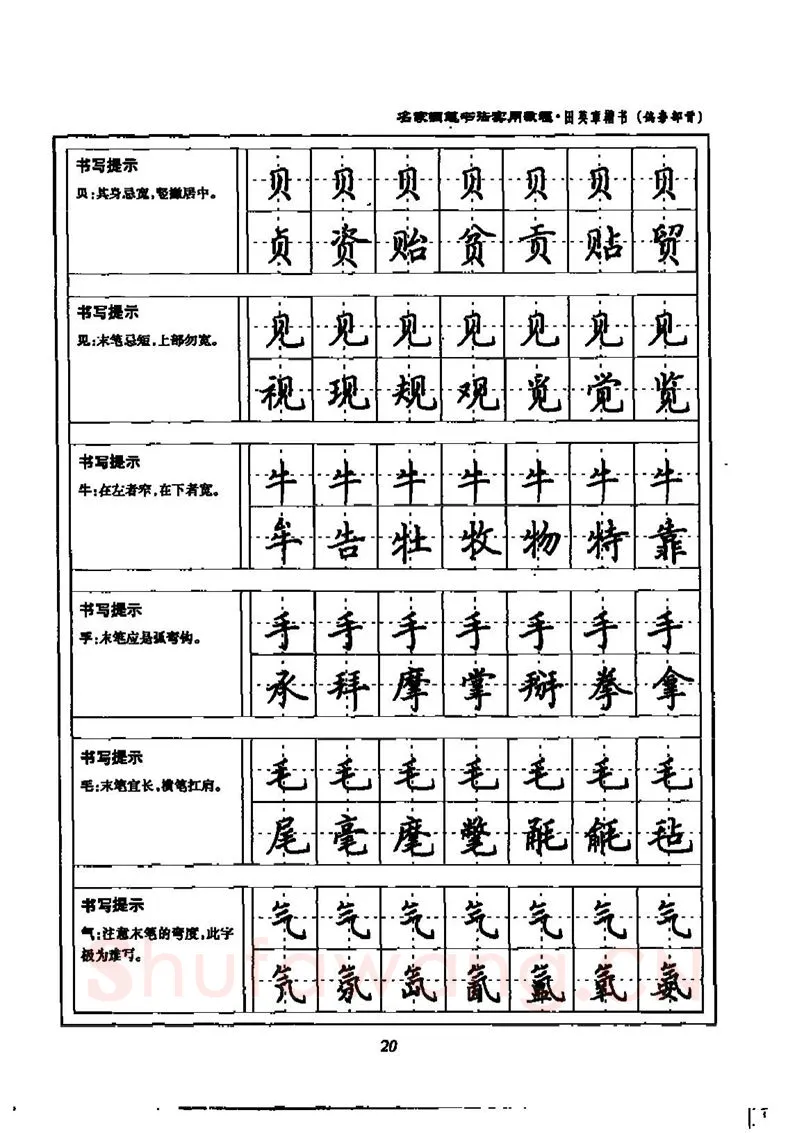 名家硬笔书法实用教程·田英章楷书(偏旁部首)
书写提示
贝:其身忌宽,竖撇居中。
贝 贝 贝 贝 贝 贝 贝
贞 资 贻 贫 贡 贴 贸
书写提示
见:末笔忌短,上部勿宽。
见 见 见 见 见 见 见
视 现 规 观 觅 觉 览
书写提示
牛:在左者窄,在下者宽。
牛 牛 牛 牛 牛 牛 牛
牟 告 牡 牧 物 特 靠
书写提示
手:末笔应是弧弯钩。
手 手 手 手 手 手 手
承 拜 摩 掌 掰 拳 拿
书写提示
毛:末笔宜长,横笔扛肩。
毛 毛 毛 毛 毛 毛 毛
尾 毫 麾 氅 毡
书写提示
气:注意末笔的弯度,此字
极为难写。
气 气 气 气 气 气 气
氛 氙 氰 氧 氨
shufawang.cn
20